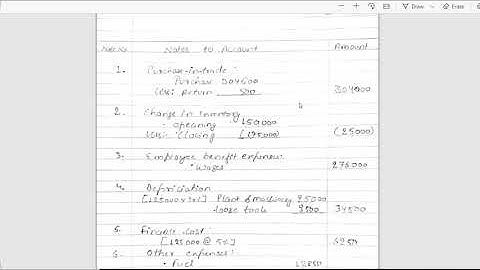 Draw
Erase
Note No. Notes to Account Amount
1. Purchase-in-trade:
Purchase 304500
Less: Return 500 304000
2. Change in Inventory
- opening 150000
Less: closing (175000) (25000)
3. Employee benefit expenses:
• Wages 276000
4. Depriciation
Plant & machinery 25000
loose tools 9500 34500
5. Finance cost:
[125000 @ 5%] 6250
6. Other expenses:
• Fuel 12850